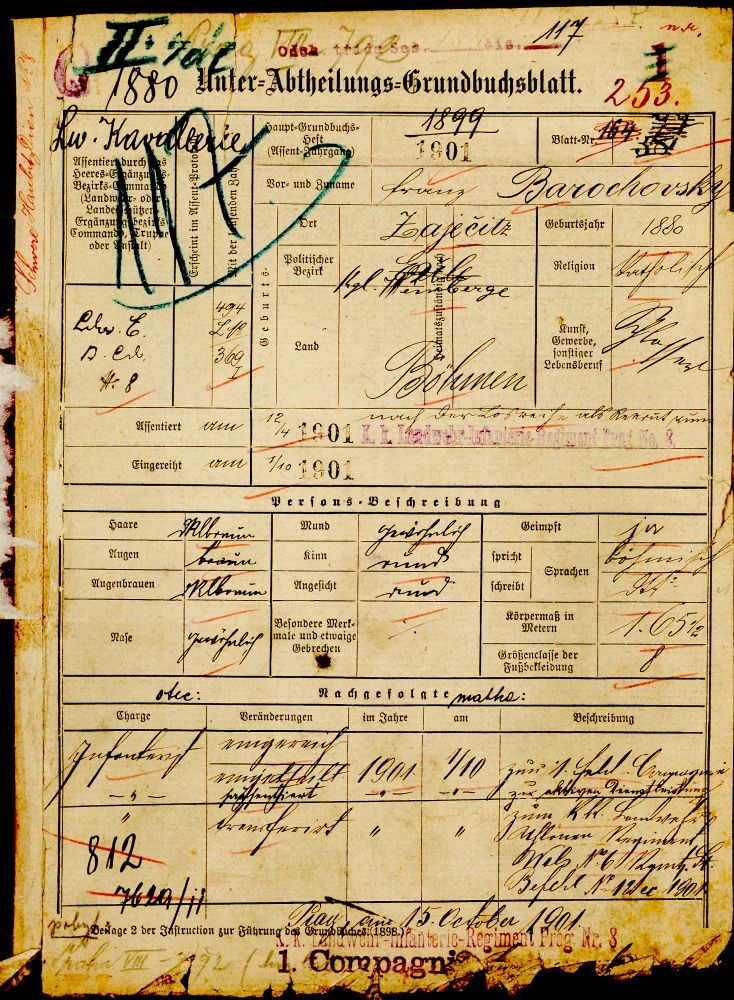 II.
117
1880 Unter-Abtheilungs-Grundbuchsblatt.
253.
Lw. Kavallerie
Assentiert durch das
Heeres-Ergänzungs-
Bezirks-Commando
(Landwehr- oder
Landesschützen-
Ergänzungsbezirks-
Commando, Truppe
oder Anstalt)
Erscheint im Assent-Protokoll
Mit der laufenden Zahl
Haupt-Grundbuchs-
Heft
(Assent-Jahrgang)
1899
1901
Blatt-Nr.
164
Vor- und Zuname
Franz Barochovsky
Geburts-
Ort
Zaječitz
Geburtsjahr
1880
Politischer
Bezirk
Kgl. Weinberge
Heimatszuständigkeit
Religion
katholisch
Land
Böhmen
Kunst,
Gewerbe,
sonstiger
Lebensberuf
Schlosser
494
369
I
№ 8
Assentiert am 12/4 1901
nach der Losreihe als Rekrut zum
K. k. Landwehr-Infanterie-Regiment Prag No. 8.
Eingereiht am 1/10 1901
Persons-Beschreibung
Haare
dklbraun
Mund
gewöhnlich
Geimpft
ja
Augen
braun
Kinn
rund
spricht
Sprachen
böhmisch
Augenbrauen
dklbraun
Angesicht
rund
schreibt
Nase
gewöhnlich
Besondere Merk-
male und etwaige
Gebrechen
Körpermaß in
Metern
1.65½
Größenclasse der
Fußbekleidung
8
otec: Nachgefolgte matka:
Charge
Veränderungen
im Jahre
am
Beschreibung
Infanterist
eingereiht
eingetheilt
1901
1/10
zur 1. Feld-Compagnie
-„-
präsentiert
-„-
-„-
zur aktiven Dienstleistung
„
transferirt
„
„
zum k.k. Landwehr
Uhlanen Regiment
Wels № 6 Rgmts.
Befehl №
1901
812
7629/II
Prag, am 15. October 1901
Beilage 2 der Instruction zur Führung des Grundbuches. (1898.)
K. k. Landwehr-Infanterie-Regiment Prag Nr. 8
1. Compagnie